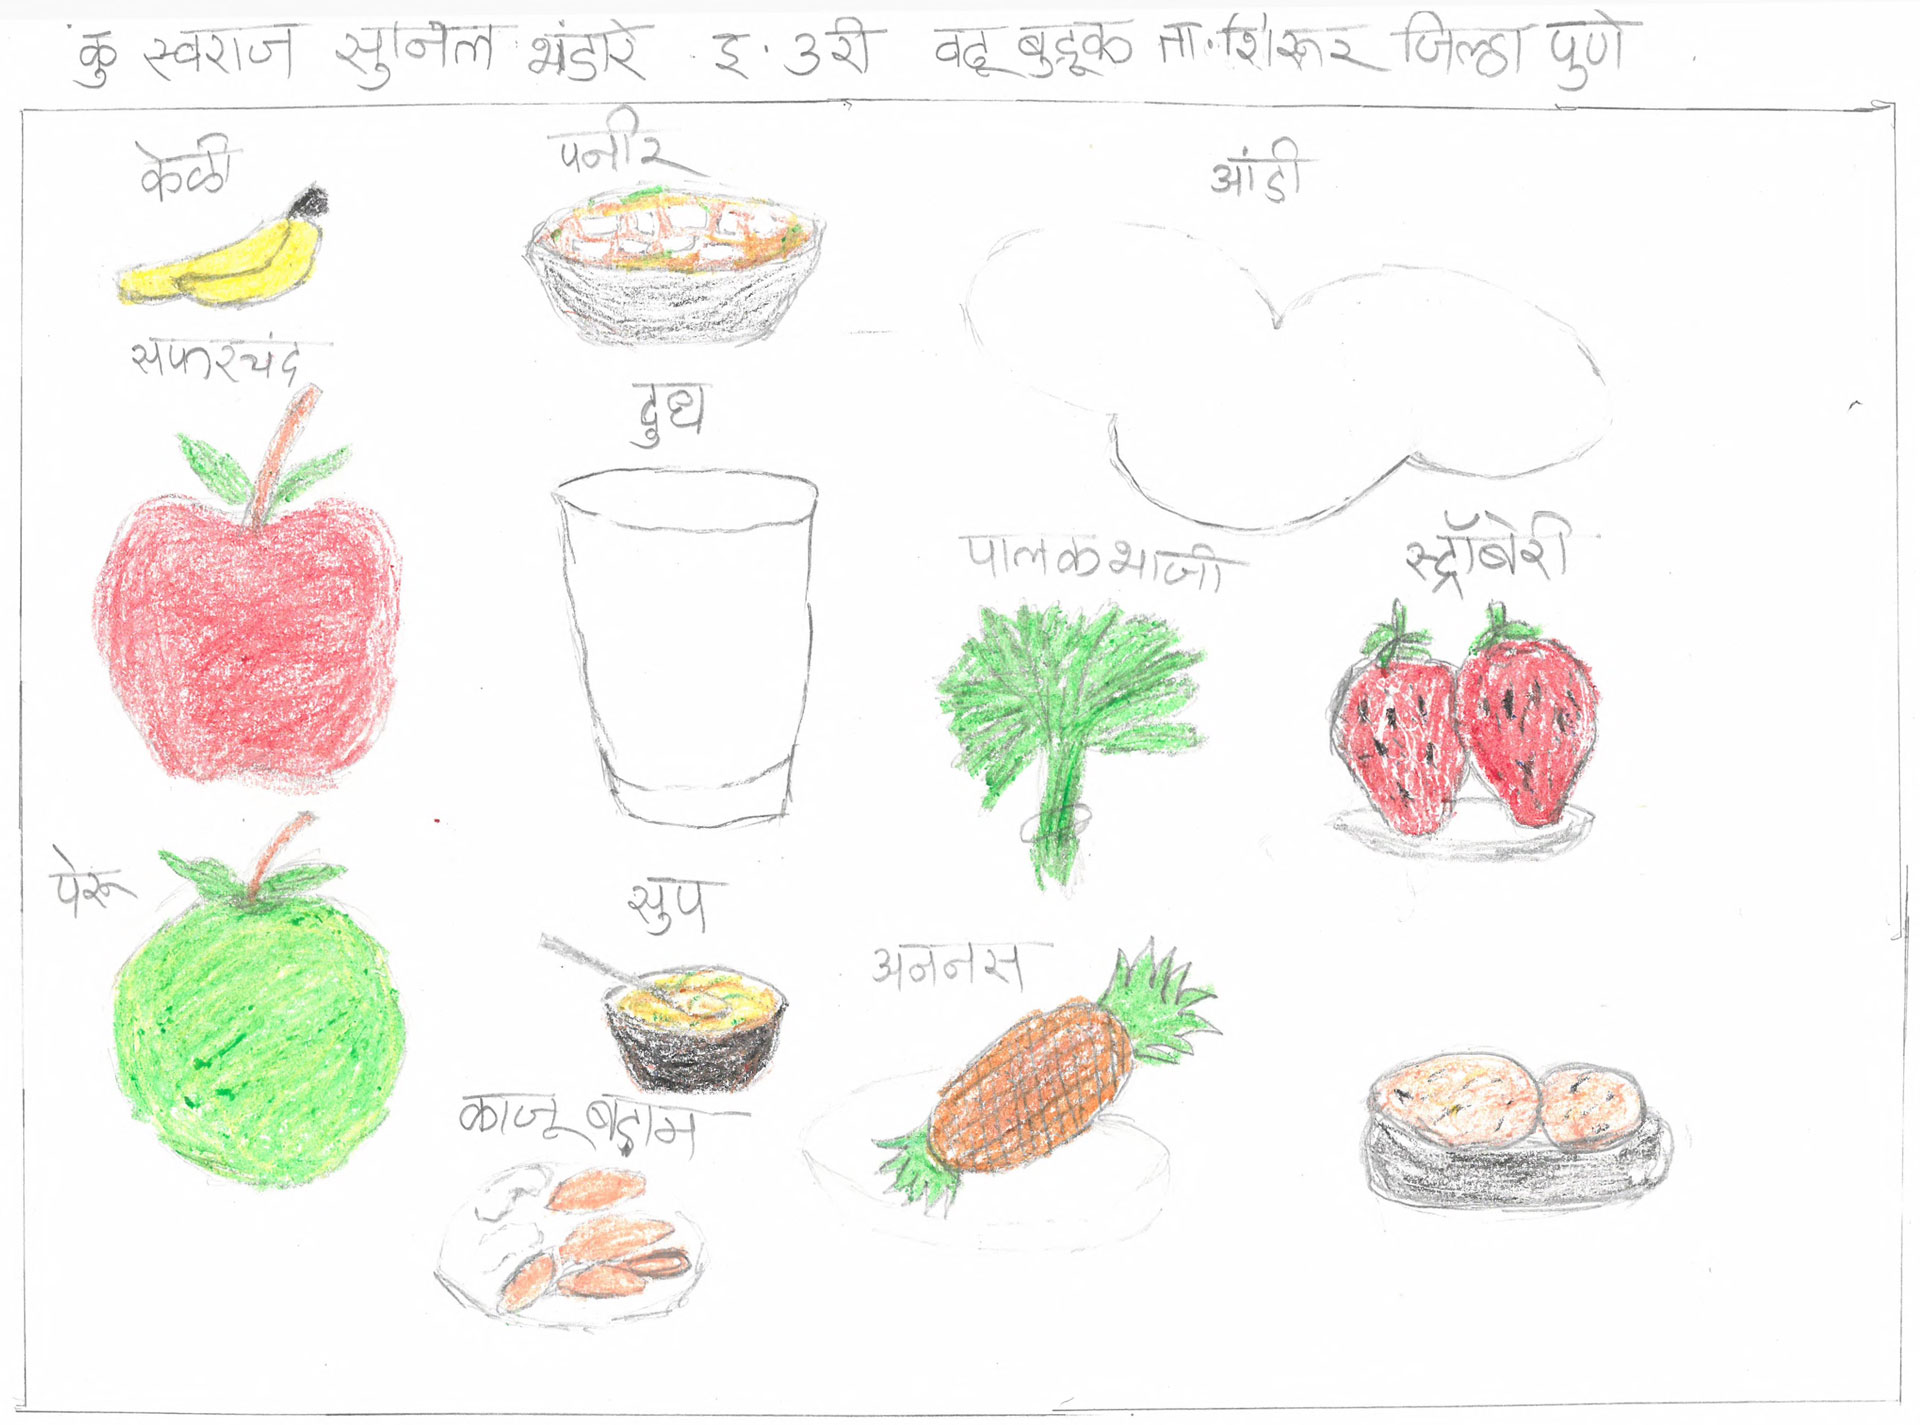 कु स्वराज सुनिल भंडारे . इ . ३री वढू बुद्रूक ता . शिरूर जिल्हा पुणे .
केळी
पनीर
आंडी
सफरचंद
दुध
पालक भाजी
स्ट्रॉबेरी
पेरू
सुप
अननस
काजू बदाम